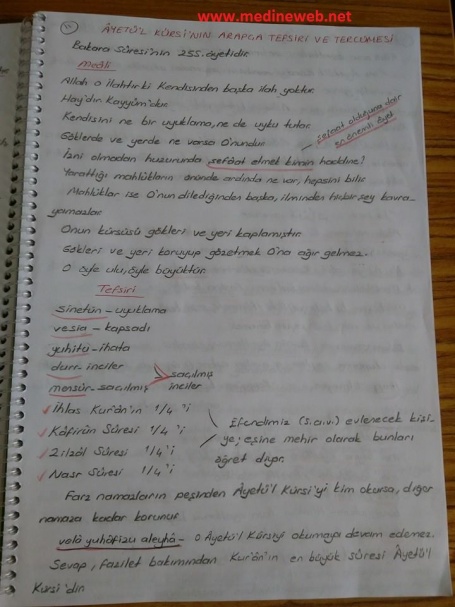 www.medineweb.net
ÂYETÜ'L KÜRSİ'NİN ARAPÇA TEFSİRİ VE TERCÜMESİ
Bakara Sûresi'nin 255. âyetidir.
Meâli
Allah o ilahtır ki Kendisinden başka ilah yoktur.
Hay'dır. Kayyûm'dur.
Kendisini ne bir uyuklama, ne de uyku tutar.
Göklerde ve yerde ne varsa O'nundur.
İzni olmadan huzurunda şefaat etmek kimin haddine!
şefaat olduğuna dair
en önemli âyet
Yarattığı mahlûkların önünde ardında ne var, hepsini bilir.
Mahlûklar ise O'nun dilediğinden başka, ilminden hiçbir şey kavra-
yamazlar.
Onun kürsüsü gökleri ve yeri kaplamıştır.
Gökleri ve yeri koruyup gözetmek O'na ağır gelmez.
O öyle ulu, öyle büyüktür.
Tefsiri
sinetün - uyuklama
vesia - kapsadı
yuhîtü - ihata
durr - inciler
mensûr - saçılmış
saçılmış
inciler
İhlas Kur'ân'ın 1/4 'i
Kâfirûn Sûresi 1/4 'i
Zilzâl Sûresi 1/4 'i
Nasr Sûresi 1/4 'i
Efendimiz (s.a.v.) evlenecek kişi-
ye; eşine mehir olarak bunları
öğret diyor.
Farz namazların peşinden Âyetü'l Kürsi'yi kim okursa, diğer
namaza kadar korunur.
velâ yuhâfizu aleyhâ - O Âyetü'l Kürsiyi okumaya devam edemez.
Sevap, fazilet bakımından Kur'ân'ın en büyük sûresi Âyetü'l
Kürsi'dir.